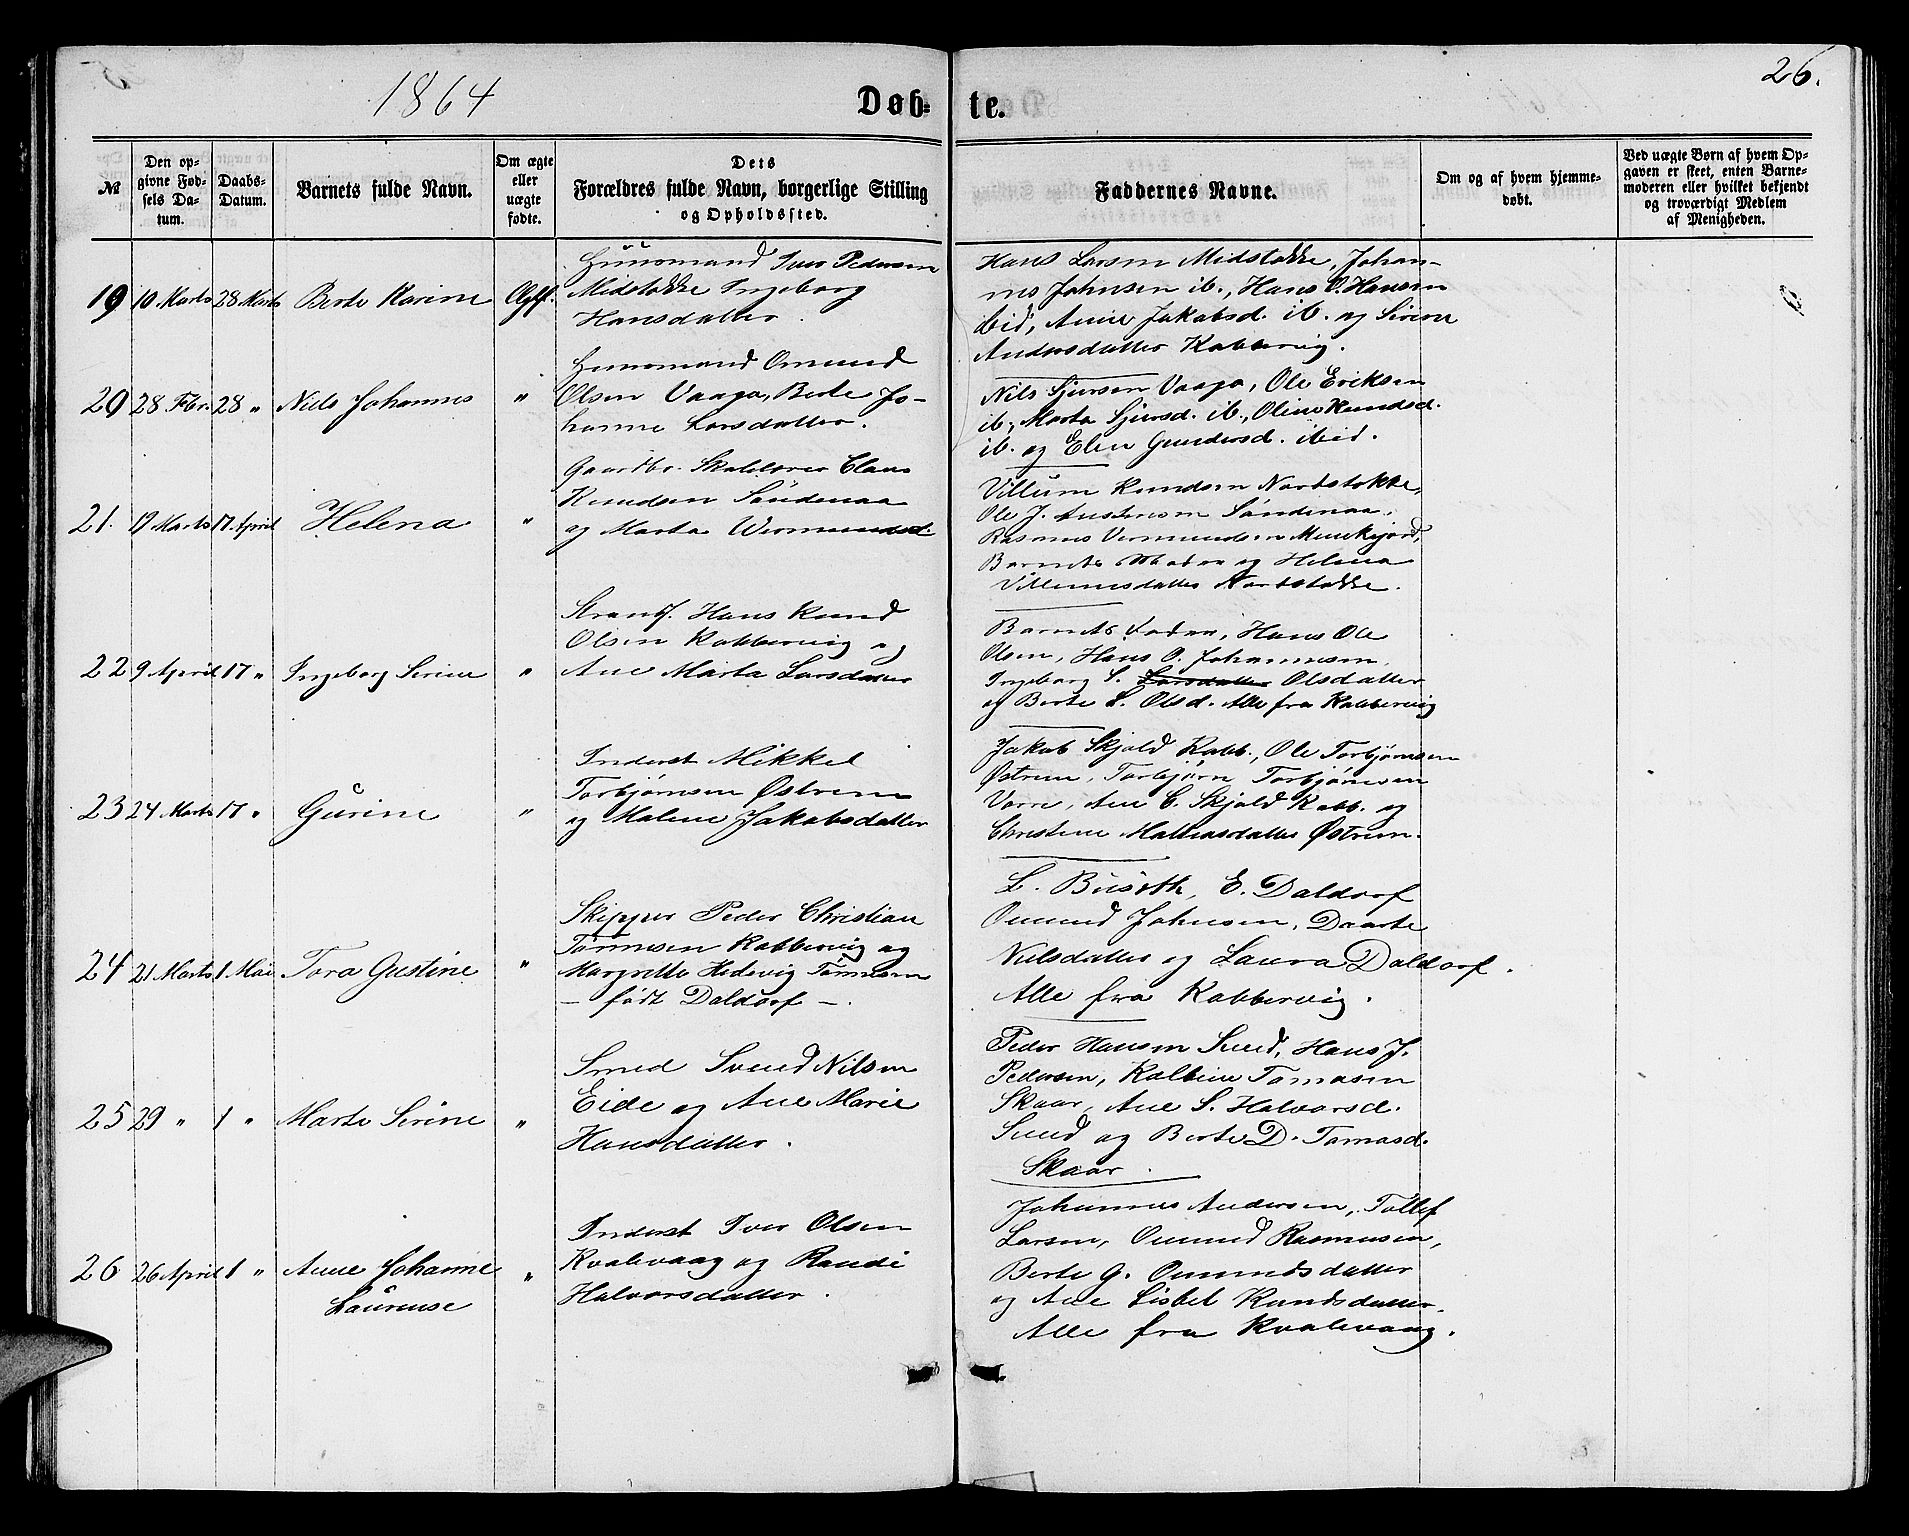 1864
Døb-te.
26.
№
Den opgivne Fødsels Datum.
Daabs-Datum.
Barnets fulde Navn.
Om ægte eller uægte fødte.
Dets Forældres fulde Navn, borgerlige Stilling og Opholdssted.
Faddernes Navne.
Om og af hvem hjemmedøbt.
Ved uægte Børn af hvem Opgaven er skeet, enten Barnemoderen eller hvilket bekjendt og troværdigt Medlem af Menigheden.
19 10 Marts 28 Marts Berte Karine Ægte.
Huusmand Iver Pedersen
Midstokke Ingeborg
Hansdatter.
Hans Larsen Midstokke, Johan-
nes Johnsen ib., Hans O. Hansen
ibid, Anne Jakobsd. ib. og Serine
Andersdatter Kobbervig.
20 28 Febr. 28 " Niels Johannes "
Huusmand Omund
Olsen Vaaga, Berte Jo-
hanne Larsdatter.
Nils Sjursen Vaaga, Ole Eriksen
ib., Marta Sjursd. ib., Oline Knudsd.
ib. og Elen Gundersd. ibid.
21. 19 Marts 17. April Helena "
Gaardbr. Skoleærer Claus
Knudsen Søndenaa
og Marta Wermundsd.
Villum Knudsen Nordstokke,
Ole J. Austensen Søndenaa,
Rasmus Vermundsen Munkejord,
Barnets Moder og Helena
Villumsdatter Nordstokke.
22 9 April 17 " Ingeborg Serine "
Strands. Hans Knud
Olsen Kobbervig og
Ane Marta Larsdatter
Barnets Fader, Hans Ole
Olsen, Hans O. Johannesen,
Ingeborg S. Larsdatter Olsdatter
og Berte L. Olsd. Alle fra Kobbervig
23 24 Marts 17 " Gurine "
Inderst Mikkel
Torbjørnsen Østrem
og Malene Jakobsdatter
Jakob Skjold Kobb., Ole Torbjørnsen
Østrem, Torbjørn Torbjørnsen
Vorre, Ane C. Skjold Kobb. og
Christine Mathiasdatter Østrem.
24 21 Marts 1 Mai Tora Gustine "
Skipper Peder Christian
Tønnesen Kobbervig og
Margrethe Hedevig Tønnesen
– født Daldorf –.
E. Daldorf
Omund Johnsen, Dorte
Nielsdatter og Laura Daldorf.
Alle fra Kobbervig.
25 29 " 1 " Marte Serine "
Smed Svend Nilsen
Eide og Ane Marie
Hansdatter.
Peder Hansen Sund, Hans J.
Pedersen, Kolbein Tomasen
Skaar, Ane S. Halvorsd.
Sund og Berte D. Tomasd.
Skaar.
26 26 April 1 " Anne Johanne "
Laurense
Inderst Iver Olsen
Kvalevaag og Randi
Halvorsdatter.
Johannes Andersen, Tollef
Larsen, Omund Rasmusen,
Berte G. Omundsdatter
og Ane Lisbet Knudsdatter.
Alle fra Kvalevaag.